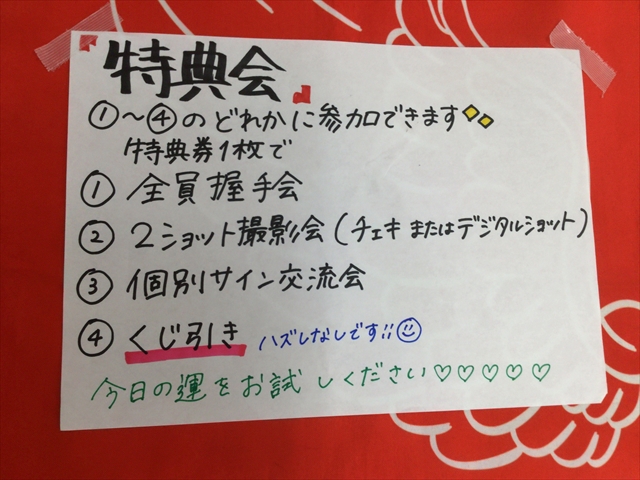 「特典会」
①～④のどれかに参加できます
特典券1枚で
① 全員握手会
② 2ショット撮影会(チェキまたはデジタルショット)
③ 個別サイン交流会
④ くじ引き ハズしなしです!!☺
今日の運をお試しください♡♡♡♡♡